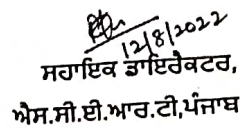 12/8/2022
ਸਹਾਇਕ ਡਾਇਰੈਕਟਰ,
ਐਸ.ਸੀ.ਈ.ਆਰ.ਟੀ,ਪੰਜਾਬ